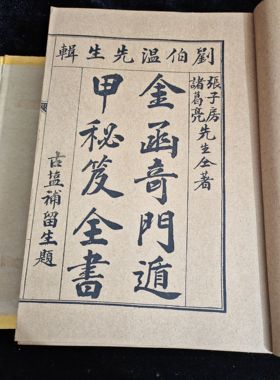 劉伯温先生輯
張子房
諸葛亮
先生仝著
金函竒門遁
甲秘笈全書
古塩補留生題